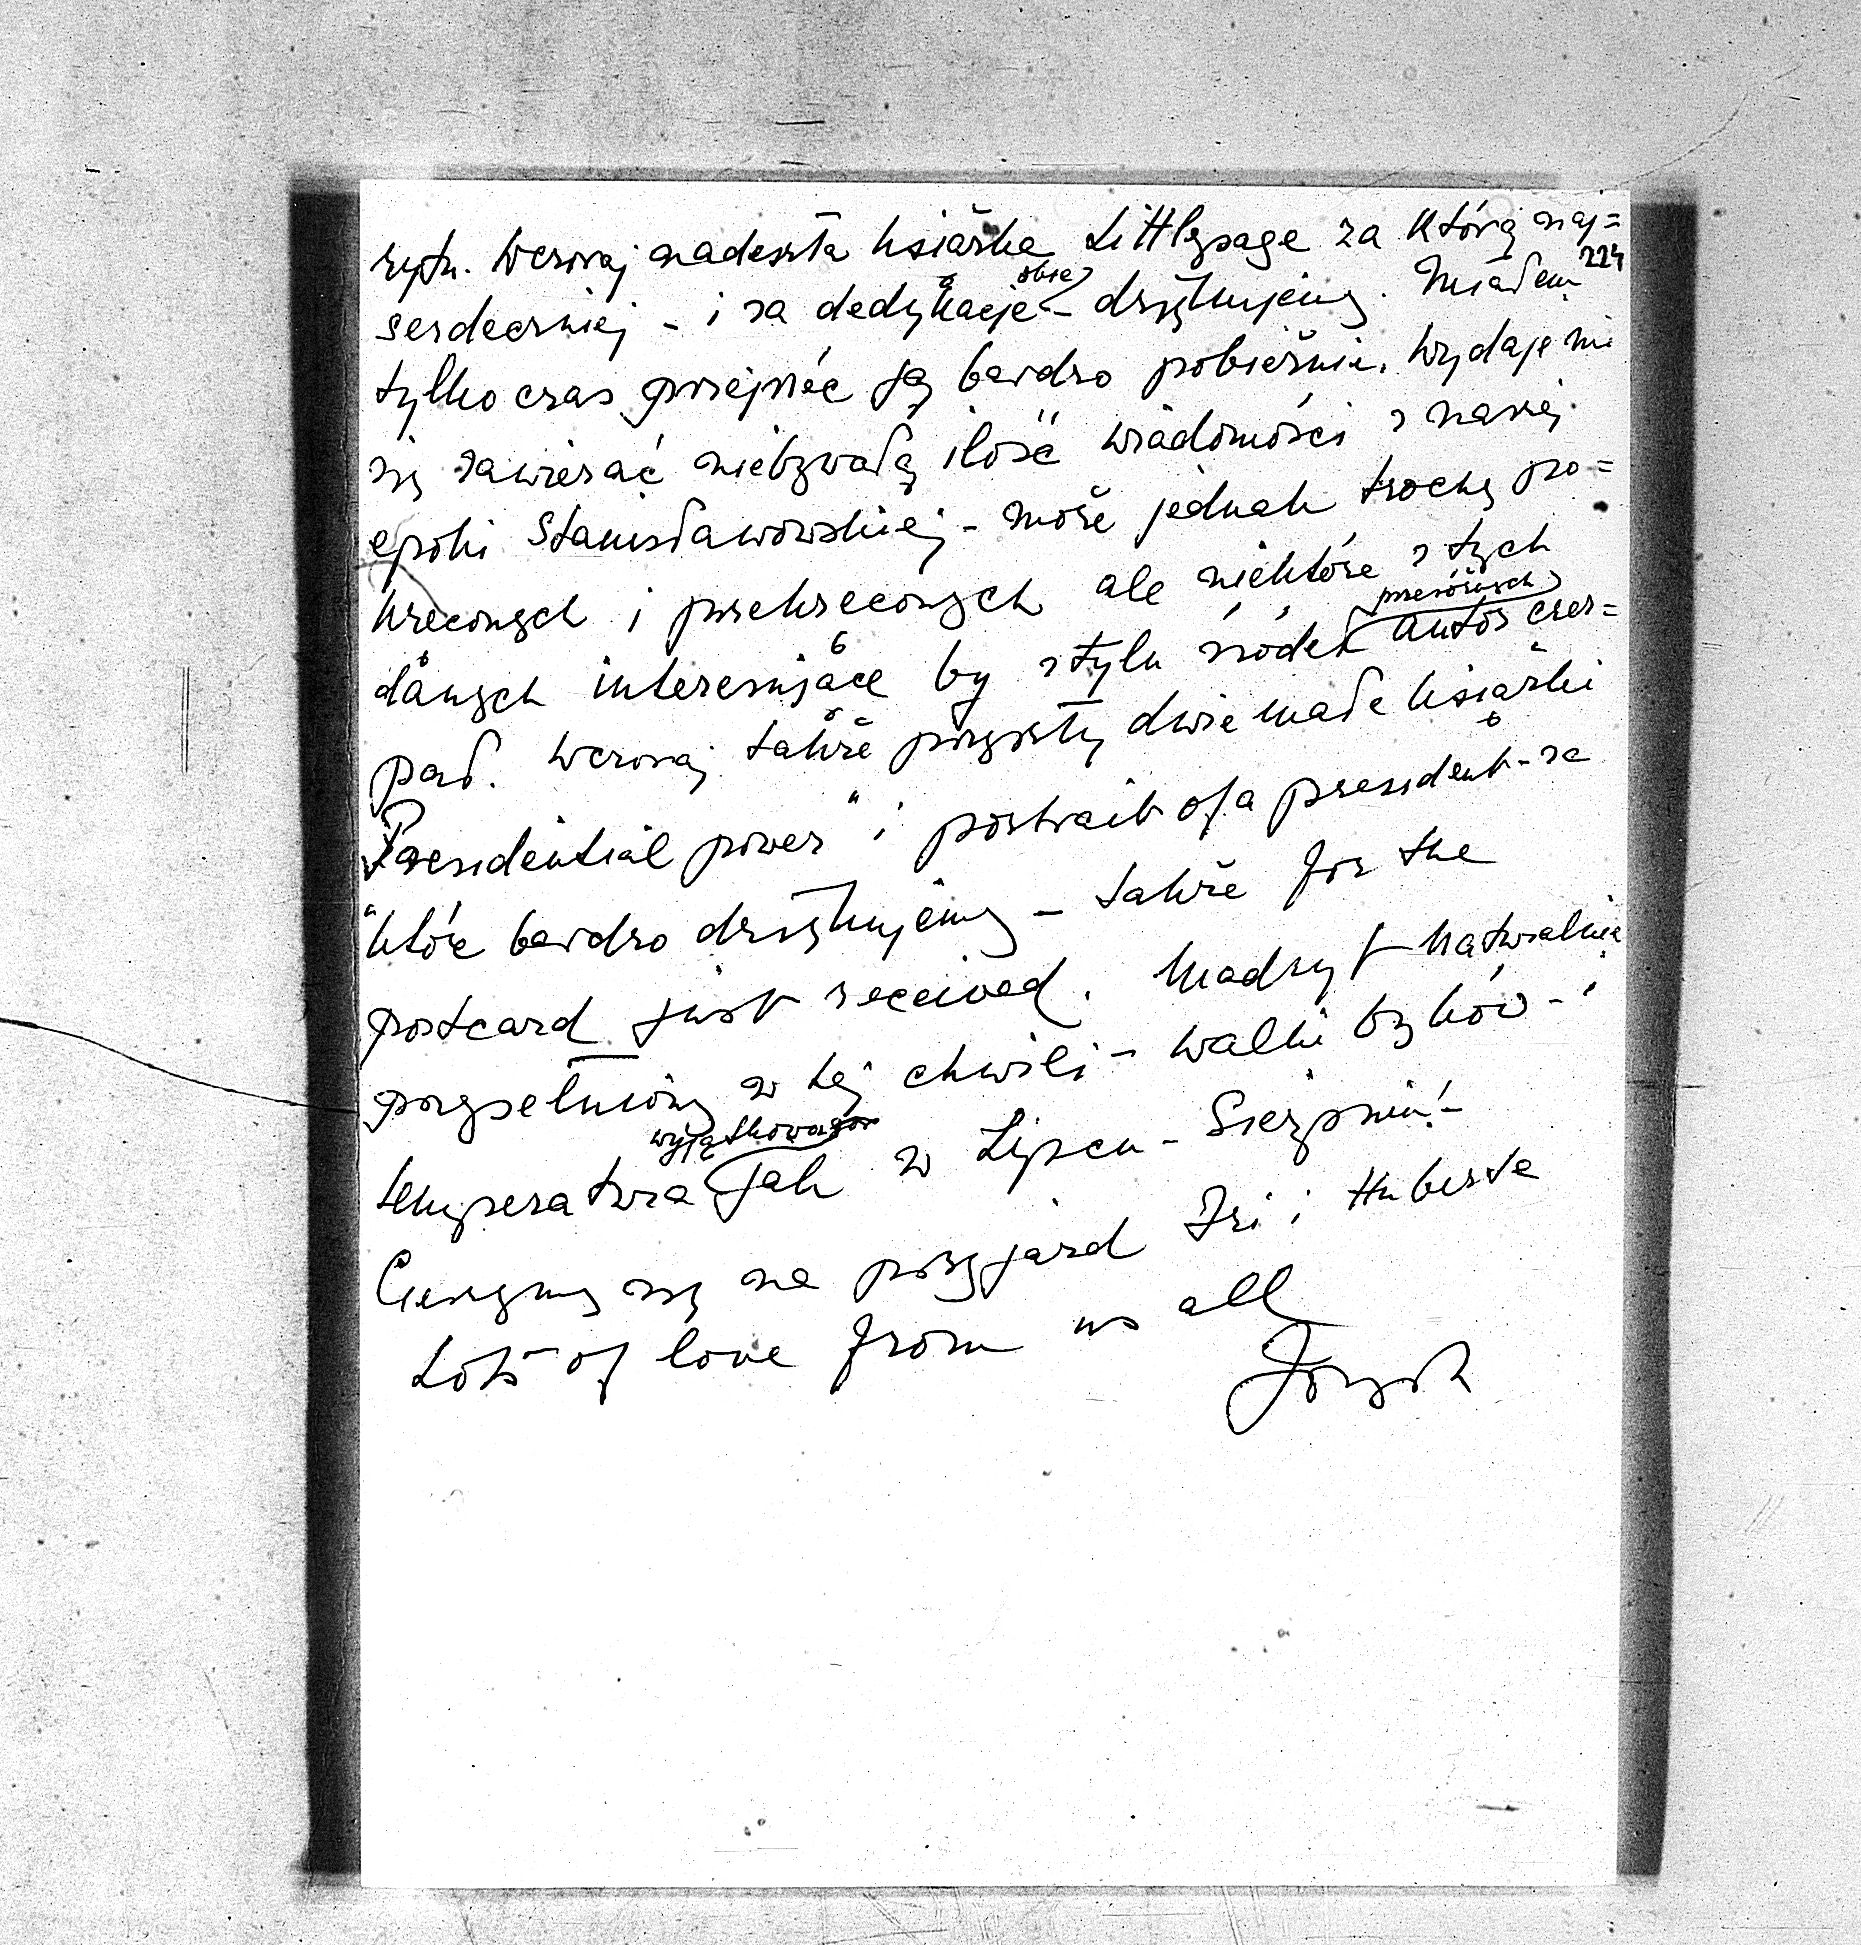 rytu. Wczoraj nadeszła książka Littlepage za którą naj=
224
serdeczniej – i za dedykację obie – dziękujemy. Miałem
tylko czas przejrzeć ją bardzo pobieżnie. Wydaje mi
się zawierać niebywałą ilość wiadomości z naszej
epoki Stanisławowskiej – może jednak trochę po=
kręconych i przekręconych ale niektóre z tych
danych interesujące by z tylu źródeł przeróżnych autor czer=
pał. Wczoraj także przyszły dwie małe książki
"Presidential power" i "portrait of a president – za
któe bardzo dziękujemy – także for the
postcard just received. Madryt naturalnie
przepełniony w tej chwili – walki byków – i
temperatura wyjątkowa jak w Lipcu – Sierpniu! –
Cieszymy się na przyjazd Izi i Huberta
Lots of love from us all
Józek